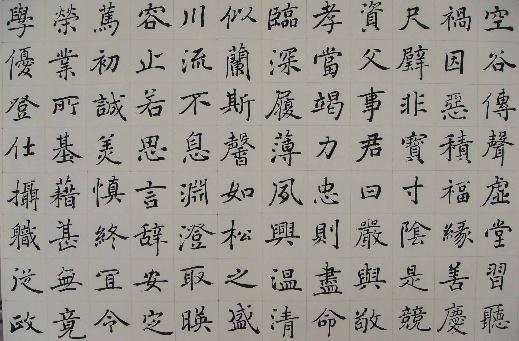 空谷傳聲虛堂習聽
禍因惡積福緣善慶
尺璧非寶寸陰是競
資父事君曰嚴與敬
孝當竭力忠則盡命
臨深履薄夙興溫凊
似蘭斯馨如松之盛
川流不息淵澄取暎
容止若思言辞安定
篤初誠美慎終宜令
榮業所基藉甚無竟
學優登仕攝職從政